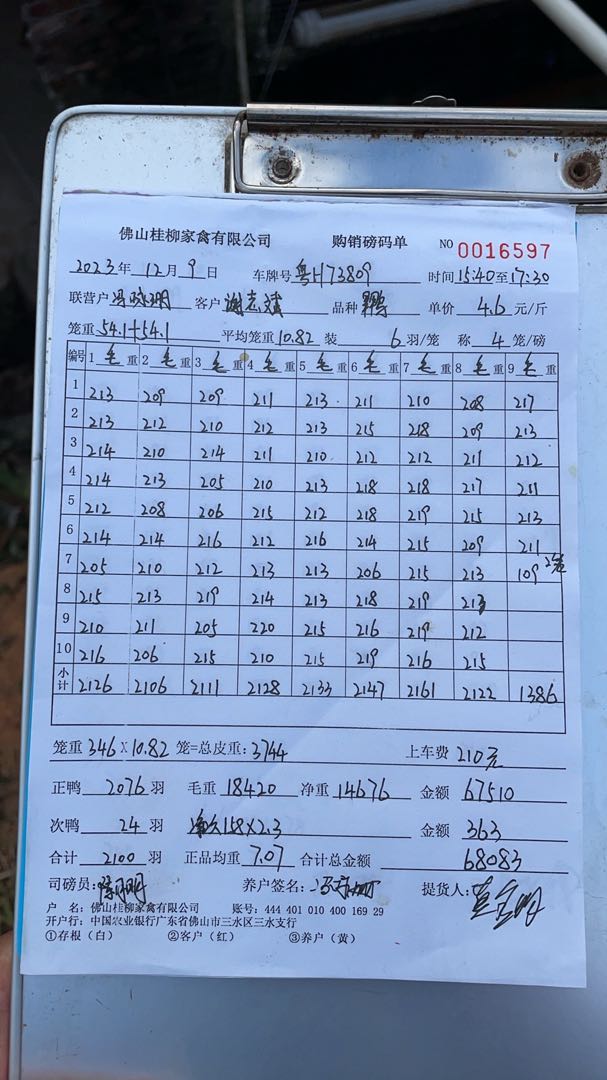 佛山桂柳家禽有限公司 购销磅码单 NO 0016597
2023年 12月 9日 车牌号 粤H73809 时间 15:40至17:30
联营户 客户 谢志斌 品种 单价 4.6 元/斤
笼重 54.1+54.1 平均笼重 10.82 装 6 羽/笼 称 4 笼/磅
编号 1 毛 重 2 毛 重 3 毛 重 4 毛 重 5 毛 重 6 毛 重 7 毛 重 8 毛 重 9 毛 重
1 213 209 209 211 213 211 210 208 217
2 213 212 210 212 213 215 218 209 213
3 214 210 214 211 210 212 212 211 212
4 214 213 205 210 213 218 218 217 211
5 212 208 206 215 212 218 219 215 213
6 214 214 216 212 216 214 215 209 211
7 205 210 212 213 213 206 215 213 109 2笼
8 215 213 219 214 213 218 219 213
9 210 211 205 220 215 216 219 212
10 216 206 215 210 215 219 216 215
小计 2126 2106 2111 2128 2133 2147 2161 2122 1386
笼重 346×10.82 笼=总皮重: 3744 上车费 210元
正鸭 2076 羽 毛重 18420 净重 14676 金额 67510
次鸭 24 羽 158×2.3 金额 363
合计 2100 羽 正品均重 7.07 合计总金额 68083
司磅员: 养户签名: 提货人:
户 名: 佛山桂柳家禽有限公司 账号: 444 401 010 400 169 29
开户行: 中国农业银行广东省佛山市三水区三水支行
①存根(白) ②客户(红) ③养户(黄)